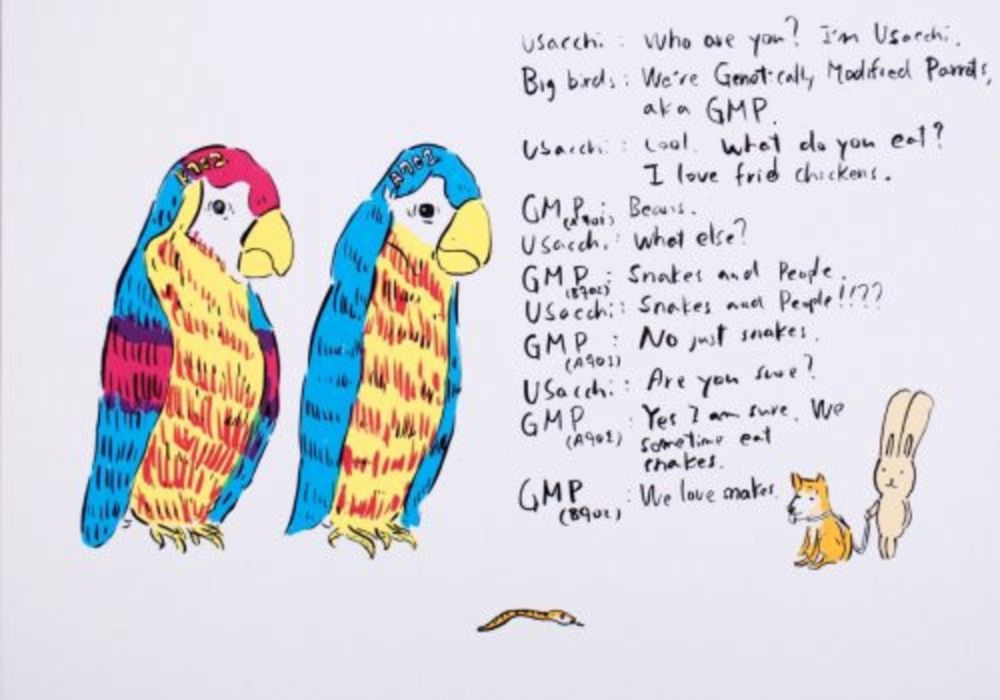 Usacchi : Who are you? I'm Usacchi.
Big birds : We're Genetically Modified Parrots,
aka GMP.
Usacchi : Cool. What do you eat?
I love frid chickens.
GMP : Beans.
(A901)
Usacchi : What else?
GMP : Snakes and People.
(B902)
Usacchi : Snakes and People!!??
GMP : No just snakes.
(A901)
Usacchi : Are you sure?
GMP : Yes I am sure. We
(A901) sometime eat
snakes.
GMP : We love snakes.
(B902)